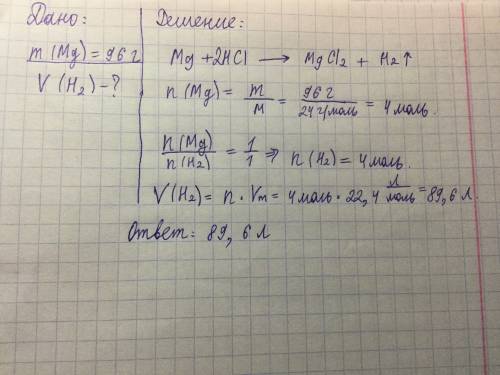 Дано:
m (Mg) = 96 г
V (H₂) - ?
Решение:
Mg + 2HCl → MgCl₂ + H₂↑
n (Mg) = m/M = 96 г/24 г/моль = 4 моль.
n (Mg)/n (H₂) = 1/1 ⇒ n (H₂) = 4 моль.
V (H₂) = n · Vm = 4 моль · 22,4 л/моль = 89,6 л.
Ответ: 89,6 л